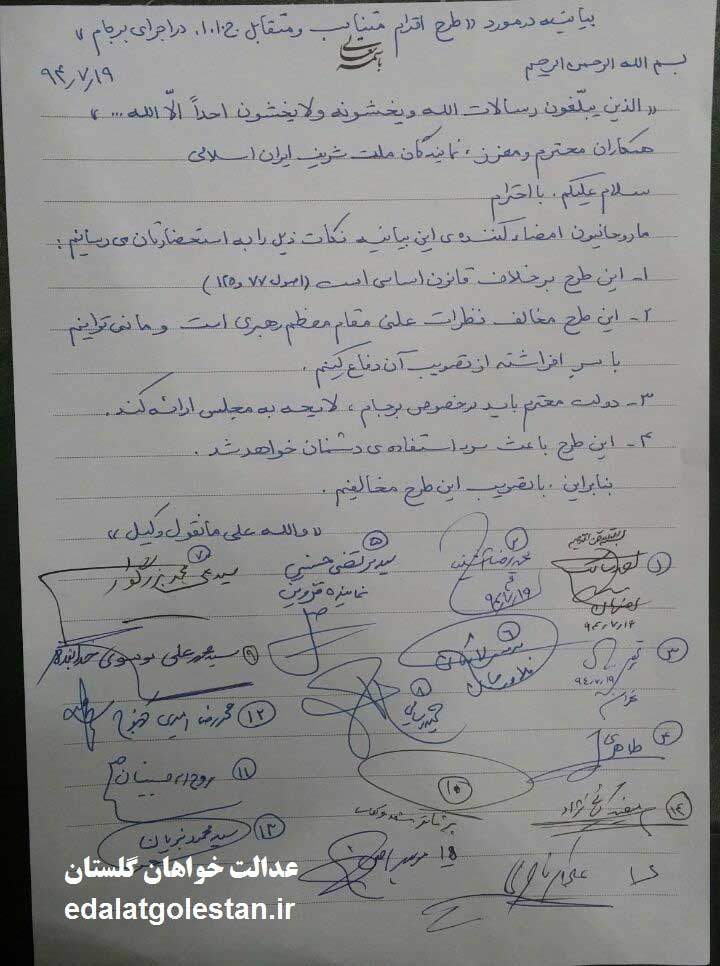 بیانیه در مورد «طرح اقدام متناسب و متقابل ج.ا.ا. در اجرای برجام»
باسمه تعالی
بسم الله الرحمن الرحیم
۹۴/۷/۱۹
«الذین یبلّغون رسالات الله و یخشونه ولا یخشون احداً الّا الله ...»
همکاران محترم و معزز، نمایندگان ملت شریف ایران اسلامی
سلام علیکم. با احترام
ما روحانیون امضاء کننده‌ی این بیانیه نکات ذیل را به استحضارتان می‌رسانیم:
۱- این طرح برخلاف قانون اساسی است (اصول ۷۷ و ۱۲۵)
۲- این طرح مخالف نظرات علنی مقام معظم رهبری است و ما نمی‌توانیم
با سرِ افراشته از تصویب آن دفاع کنیم.
۳- دولت محترم باید در خصوص برجام، لایحه به مجلس ارائه کند.
۴- این طرح باعث سوء استفاده‌ی دشمنان خواهد شد.
بنابراین، با تصویب این طرح مخالفیم.
«والله علی ما نقول وکیل»
۱
۲ محمدرضا
۹۴/۷/۱۹
۵ سید مرتضی حسینی
نماینده قزوین
۷ سید
۳
۹۴/۷/۱۹
۶
۹ سید محمد علی موسوی
۸
۱۲ محمدرضا امیری کهنوج
۴ طاهری
۱۱ روح‌الله
۱۰
۱۳ سید محمد نبویان
۱۴ نژاد
عدالت خواهان گلستان
edalatgolestan.ir